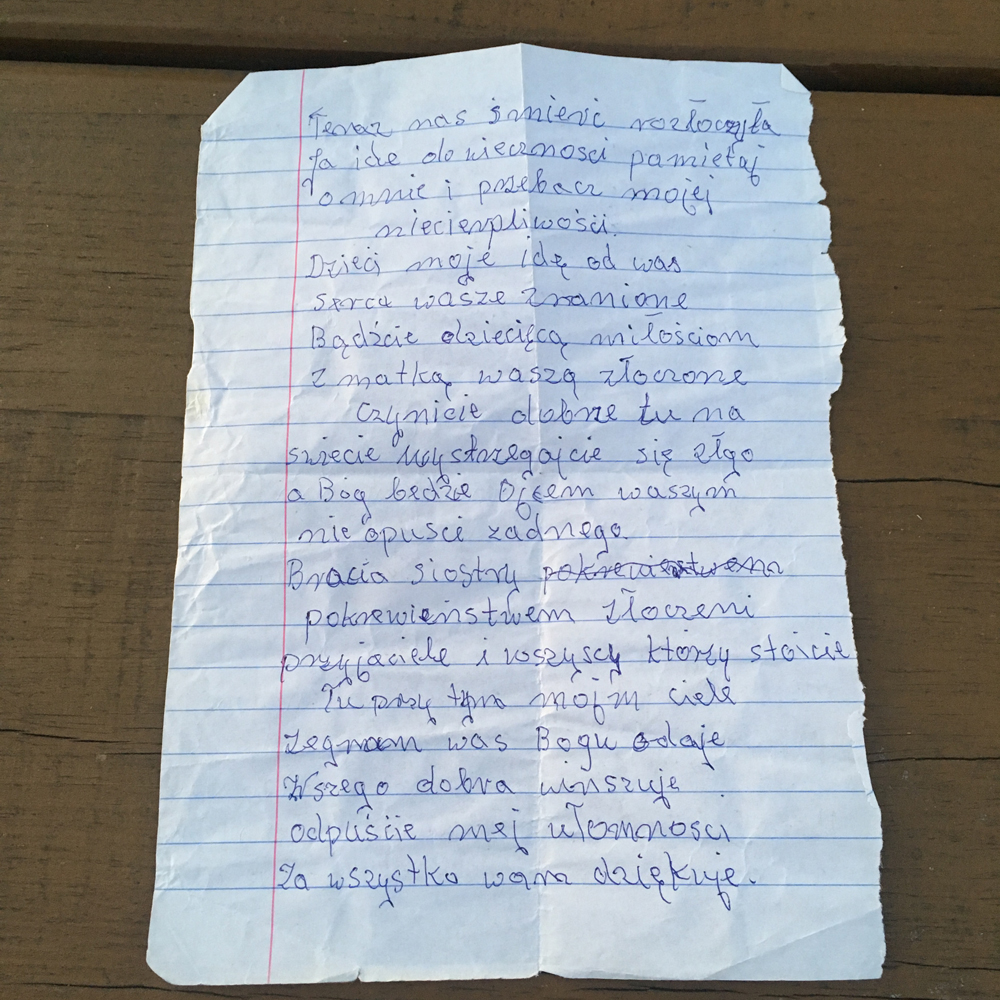 Teraz nas śmierć rozłoczyła
Ja ide do wieczności pamiętaj
o mnie i przebacz mojej
niecierpliwości.
Dzieci moje idę od was
serca wasze zranione
Bądźcie dziecięcą miłościom
z matką waszą złoczone
Czyńcie dobrze tu na
świecie wystrzegajcie się złgo
a Bóg będzie Ojcem waszym
nie opusci żadnego.
Bracia siostry pokrewieństwem
pokrewieństwem złoczeni
przyjaciele i wszyscy którzy stoicie
Tu przy tym mojm ciele
żegnam was Bogu odaje
Wszego dobra winszuje
odpuście mej ułomnosci
Za wszystko wam dziękuje.